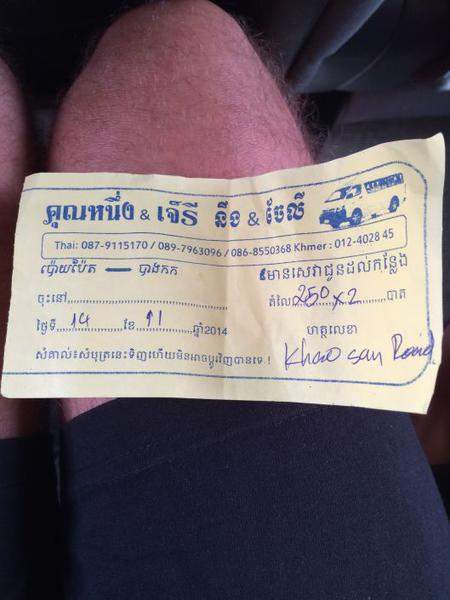 คุณหนึ่ง & เจ๊รี នឹង & ចែលី
Thai: 087-9115170 / 089-7963096 / 086-8550368 Khmer : 012-4028 45
ប៉ោយប៉ែត — បាងកក
មានសេវាជូនដល់កន្លែង
ចុះនៅ
តំលៃ 250 x 2 បាត
ថ្ងៃទី 14 ខែ 11 ឆ្នាំ 2014
ហត្តលេខា
សំគាល់៖ សំបុត្រនេះទិញហើយមិនអាចប្តូរវិញបានទេ !
Khao san Road